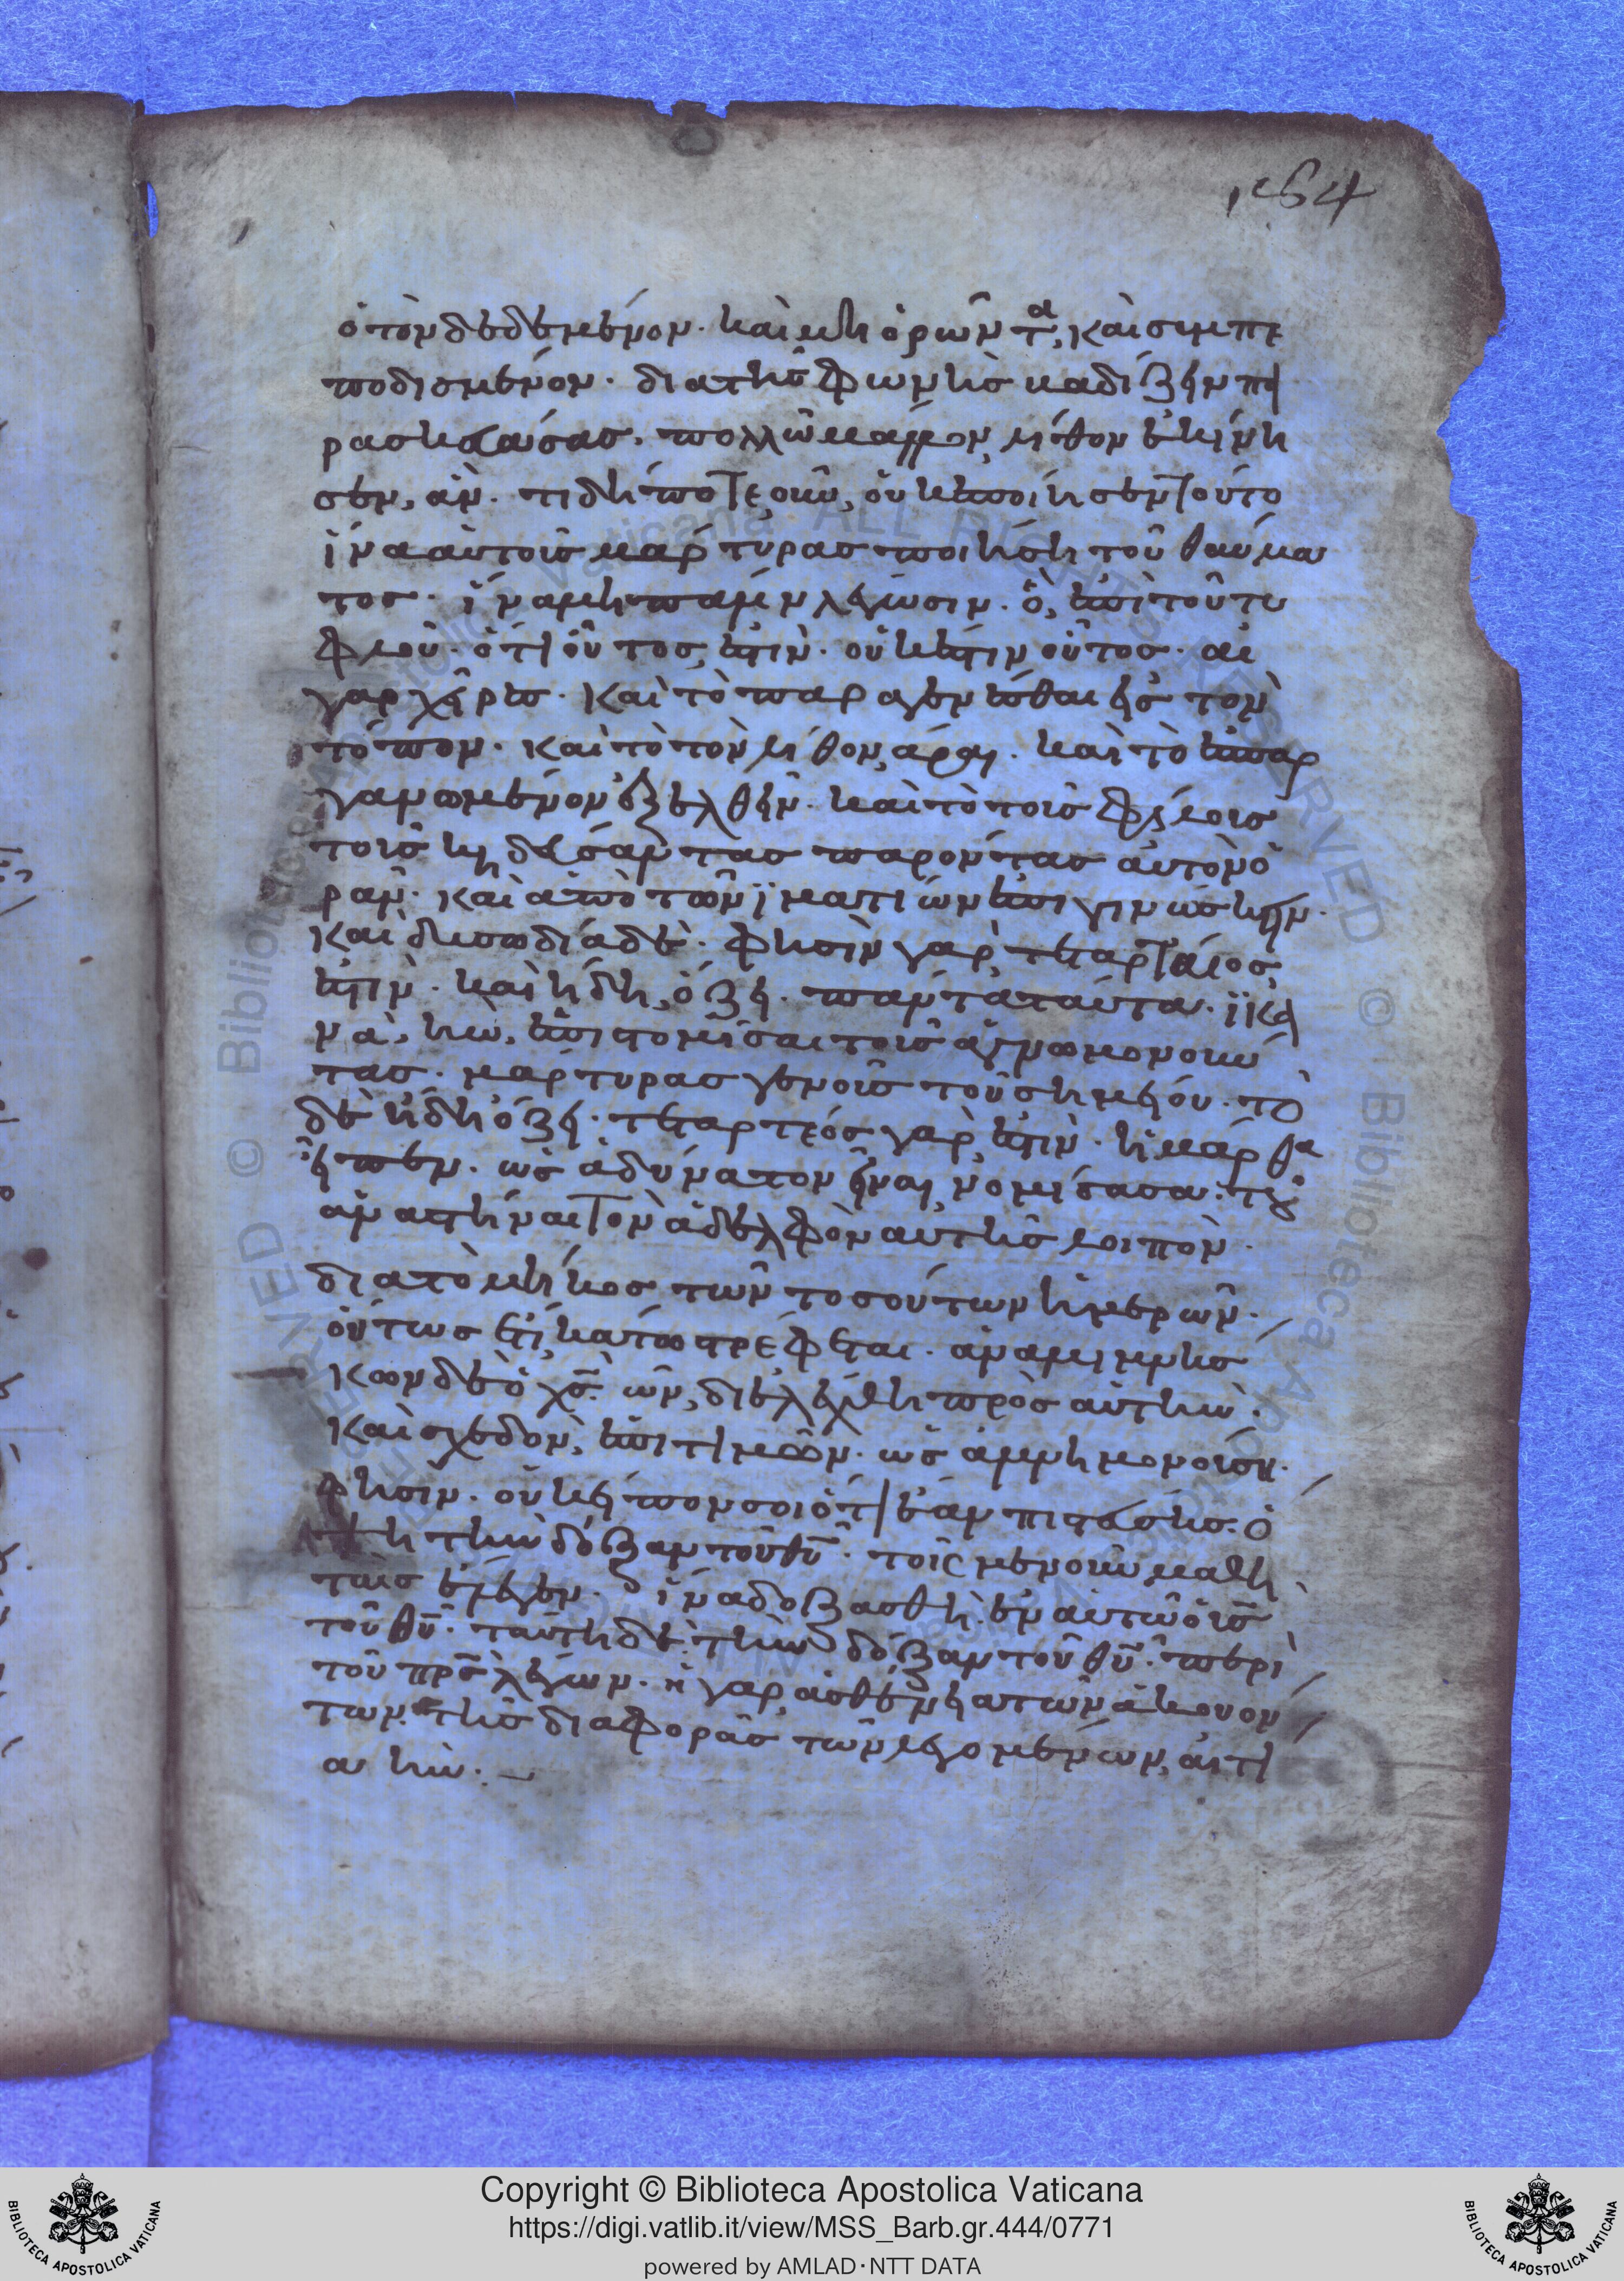 164
ὁ τὸν δεδεμένον· καὶ μὴ ὁρῶντα, καὶ συμπε
ποδισμένον· διὰ τῆς φωνῆς καὶ δίξειν πε
ράσας· πολλῶ μᾶλλον λίθον ἐκίνη
σεν, ἄν· τί δή ποτε οὖν, οὐκ ἐποίησεν τοῦτο
ἵνα αὐτοὺς μάρτυρας ποιήση τοῦ θαύμα
τος· ἵνα μὴ πάλιν λέγωσιν· ὃ, ἐπὶ τοῦ τυ
φλοῦ· ὅτι οὗτος ἐστίν· οὐκ ἔστιν οὗτος· αἱ
γὰρ χεῖρες· καὶ τὸ παραγενέσθαι εἰς τὸν
τόπον· καὶ τὸ τὸν λίθον, ἆραι· καὶ τὸ ἐσπαρ
γανωμένον ἐξελθεῖν· καὶ τὸ τοὺς φίλους
τοὺς κηδεύσαντας παρόντας αὐτὸν ὁ
ρᾶν· καὶ ἀπὸ τῶν ἱματίων ἐπιγινώσκειν·
καὶ δυσωδία δὲ· φησὶν γὰρ, τεταρταῖος
ἐστίν· καὶ ἤδη, ὄζει· πάντα ταῦτα· ἱκα
νὰ, ἦν, ἐπιστομίσαι τοὺς ἀγνωμονοῦν
τας· μάρτυρας γενοὺς τοῦ σημείου· τὸ
δὲ ἤδη ὄζει· τεταρτεός γὰρ ἐστίν· ἡ μάρθα
εἶπεν· ὡς ἀδύνατον εἶναι, νομίσασα· τοῦ
ἀναστῆναι τὸν ἀδελφὸν αὐτῆς λοιπὸν·
διὰ τὸ μῆκος τῶν τοσούτων ἡμερῶν·
οὕτως ἔτι, κάτω στρέφεται· ἀναμιμνης
κων δὲ ὁ χς̅· ὧν, διελέχθη πρὸς αὐτὴν·
καὶ σχεδὸν, ἐπιτιμῶν· ὡς ἀμνημονούση·
φησίν· οὐκ εἶπον σοι ὅτι ἐὰν πιστεύσης· ὄ
ψη τὴν δόξαν τοῦ θυ̅· τοῖς μὲν οὖν μαθη
ταῖς ἔλεγεν· ἵνα δοξασθῆ ἐν αὐτῶ ὁ υἱς̅
τοῦ θυ̅· ταύτη δὲ τὴν δόξαν τοῦ θυ̅· περὶ
τοῦ πρς̅ λέγων· ἡ γὰρ ἀσθένεια τῶν ἀκουόν
των· τῆς διαφορᾶς τῶν λεγομένων, αἰτί
α ἦν·
Copyright © Biblioteca Apostolica Vaticana
https://digi.vatlib.it/view/MSS_Barb.gr.444/0771
powered by AMLAD·NTT DATA
BIBLIOTECA APOSTOLICA VATICANA
BIBLIOTECA APOSTOLICA VATICANA